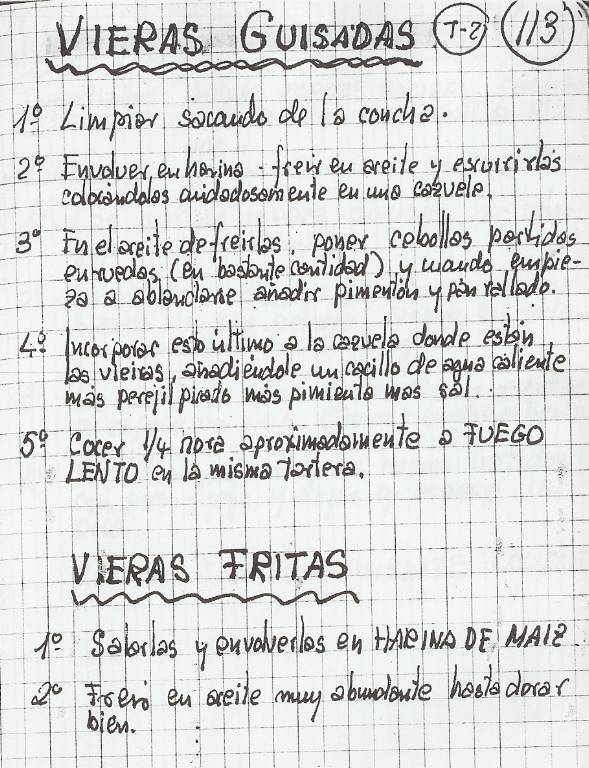 VIERAS GUISADAS T-2 113
1º Limpiar sacando de la concha.
2º Envolver en harina - freir en aceite y escurrirlas
colocándolas cuidadosamente en una cazuela.
3º En el aceite de freirlas, poner cebollas partidas
en ruedas, (en bastante cantidad) y cuando empie-
za a ablandarse añadir pimentón y pan rallado.
4º Incorporar esto último a la cazuela donde están
las vieiras, añadiéndole un cacillo de agua caliente
más perejil picado más pimienta mas sal.
5º Cocer 1/4 hora aproximadamente a FUEGO
LENTO en la misma tartera.
VIERAS FRITAS
1º Salarlas y envolverlas en HARINA DE MAIZ
2º Freir en aceite muy abundante hasta dorar
bien.